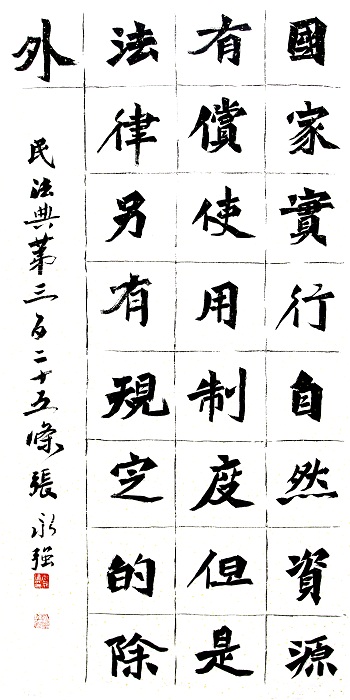 國家實行自然資源
有償使用制度但是
法律另有規定的除
外
民法典第三百二十五條張永强